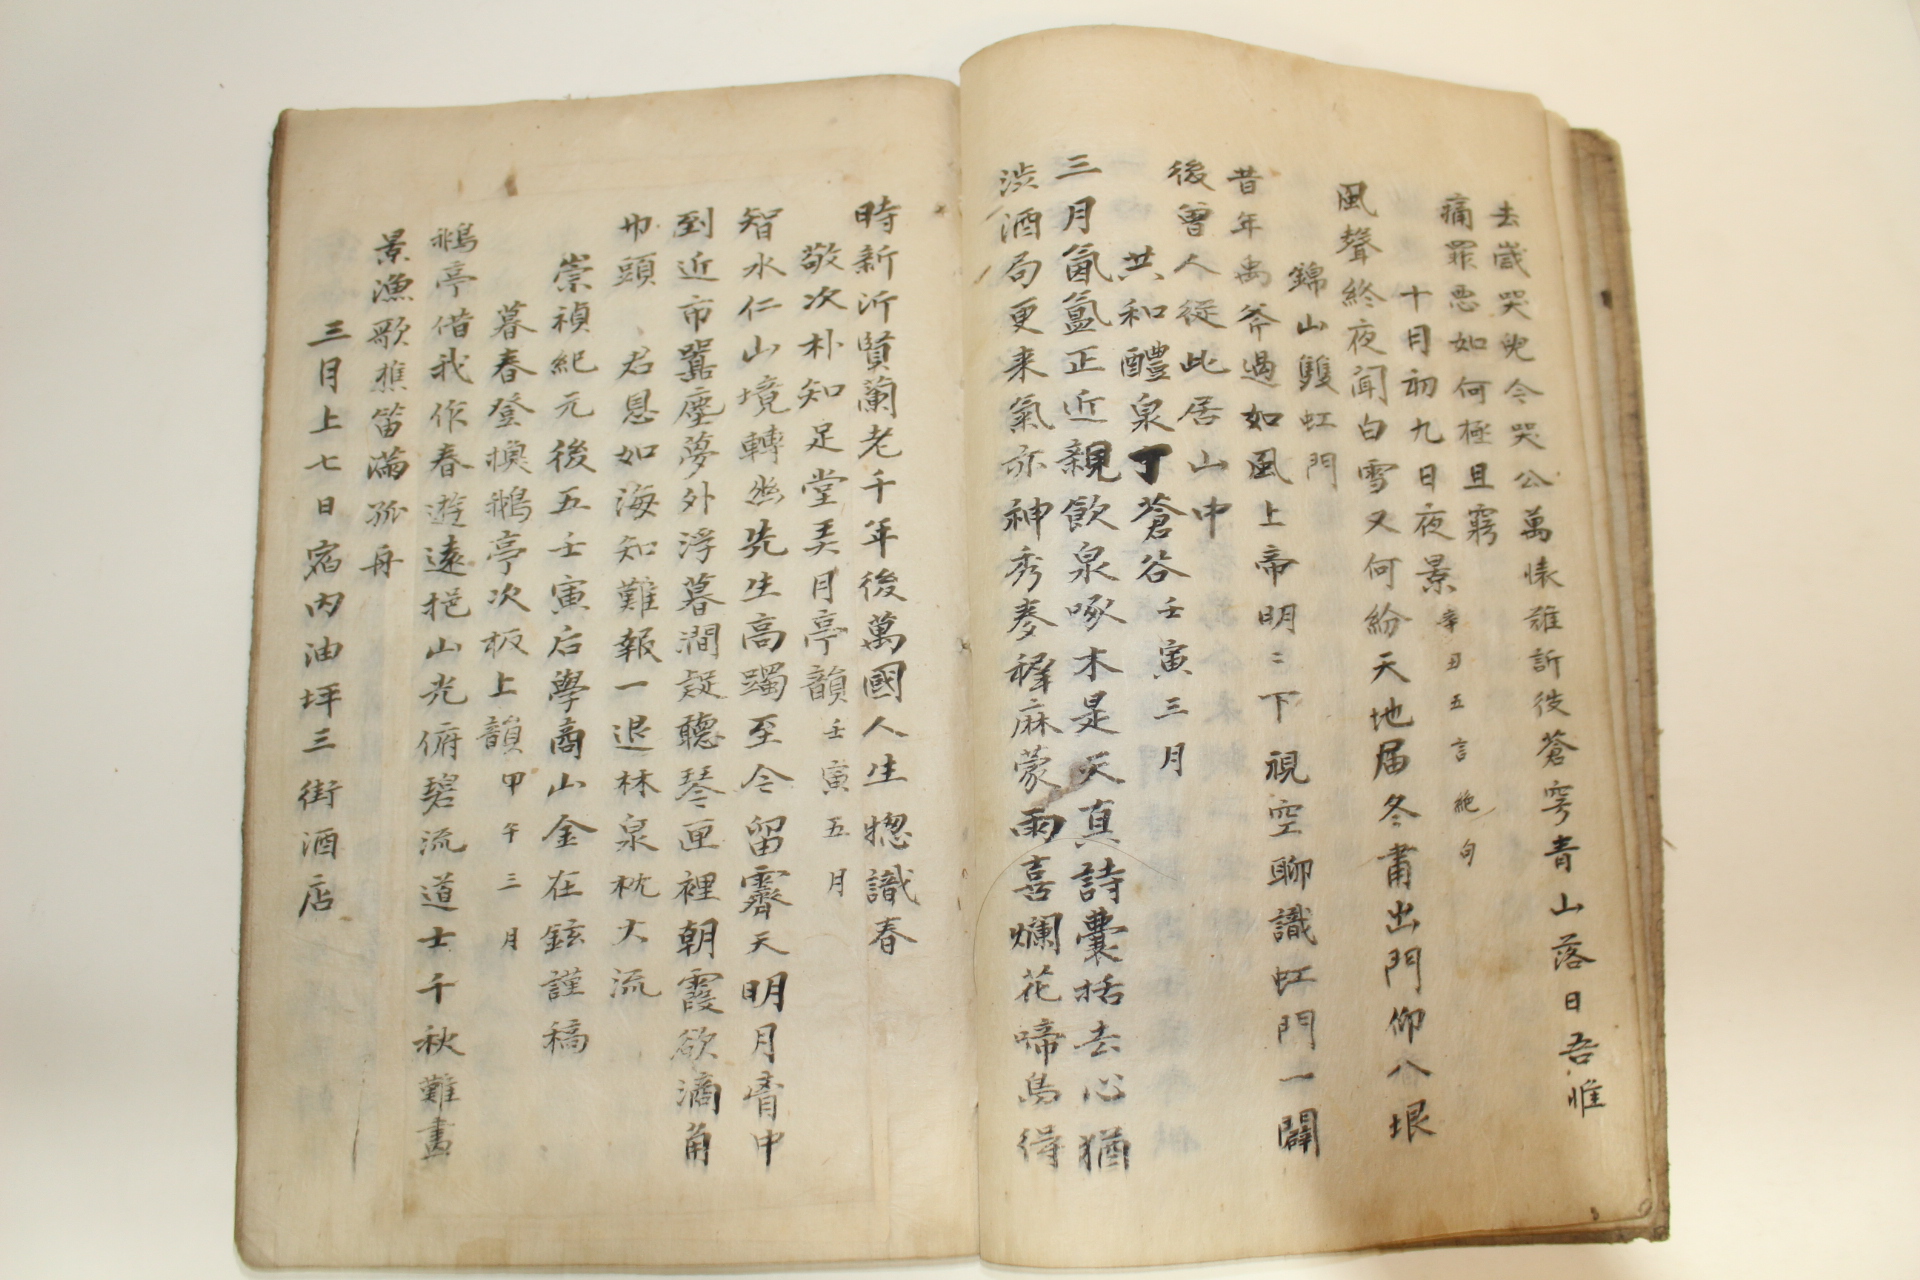 去歲哭兒今哭公萬悽難訴彼蒼穹青山落日吾惟
痛罪惡如何極且窮
十月初九日夜景辛丑五言絶句
風聲終夜聞白雪又何紛天地届冬肅出門仰八垠
錦山雙虹門
昔年禹斧過如風上帝明〻下視空聊識虹門一闢
後曾人從此居山中
共和醴泉丁蒼谷壬寅三月
三月氤氳正近親飮泉啄木是天真詩囊括去心猶
澁酒局更来氣亦神秀麥穉麻蒙雨喜爛花啼鳥得
時新沂賢蘭老千年後萬國人生摠識春
敬次朴知足堂弄月亭韻壬寅五月
智水仁山境轉幽先生高躅至今留霽天明月看中
到近市囂塵夢外浮暮澗疑聽琴匣裡朝霞欲滴角
巾頭 君恩如海知難報一退林泉枕大流
崇禎紀元後五壬寅后學商山金在鉉謹稿
暮春登換鵝亭次板上韻甲午三月
鵝亭借我作春遊遠挹山光俯碧流道士千秋難畫
景漁歌樵笛滿孤舟
三月上七日宿内油坪三街酒店